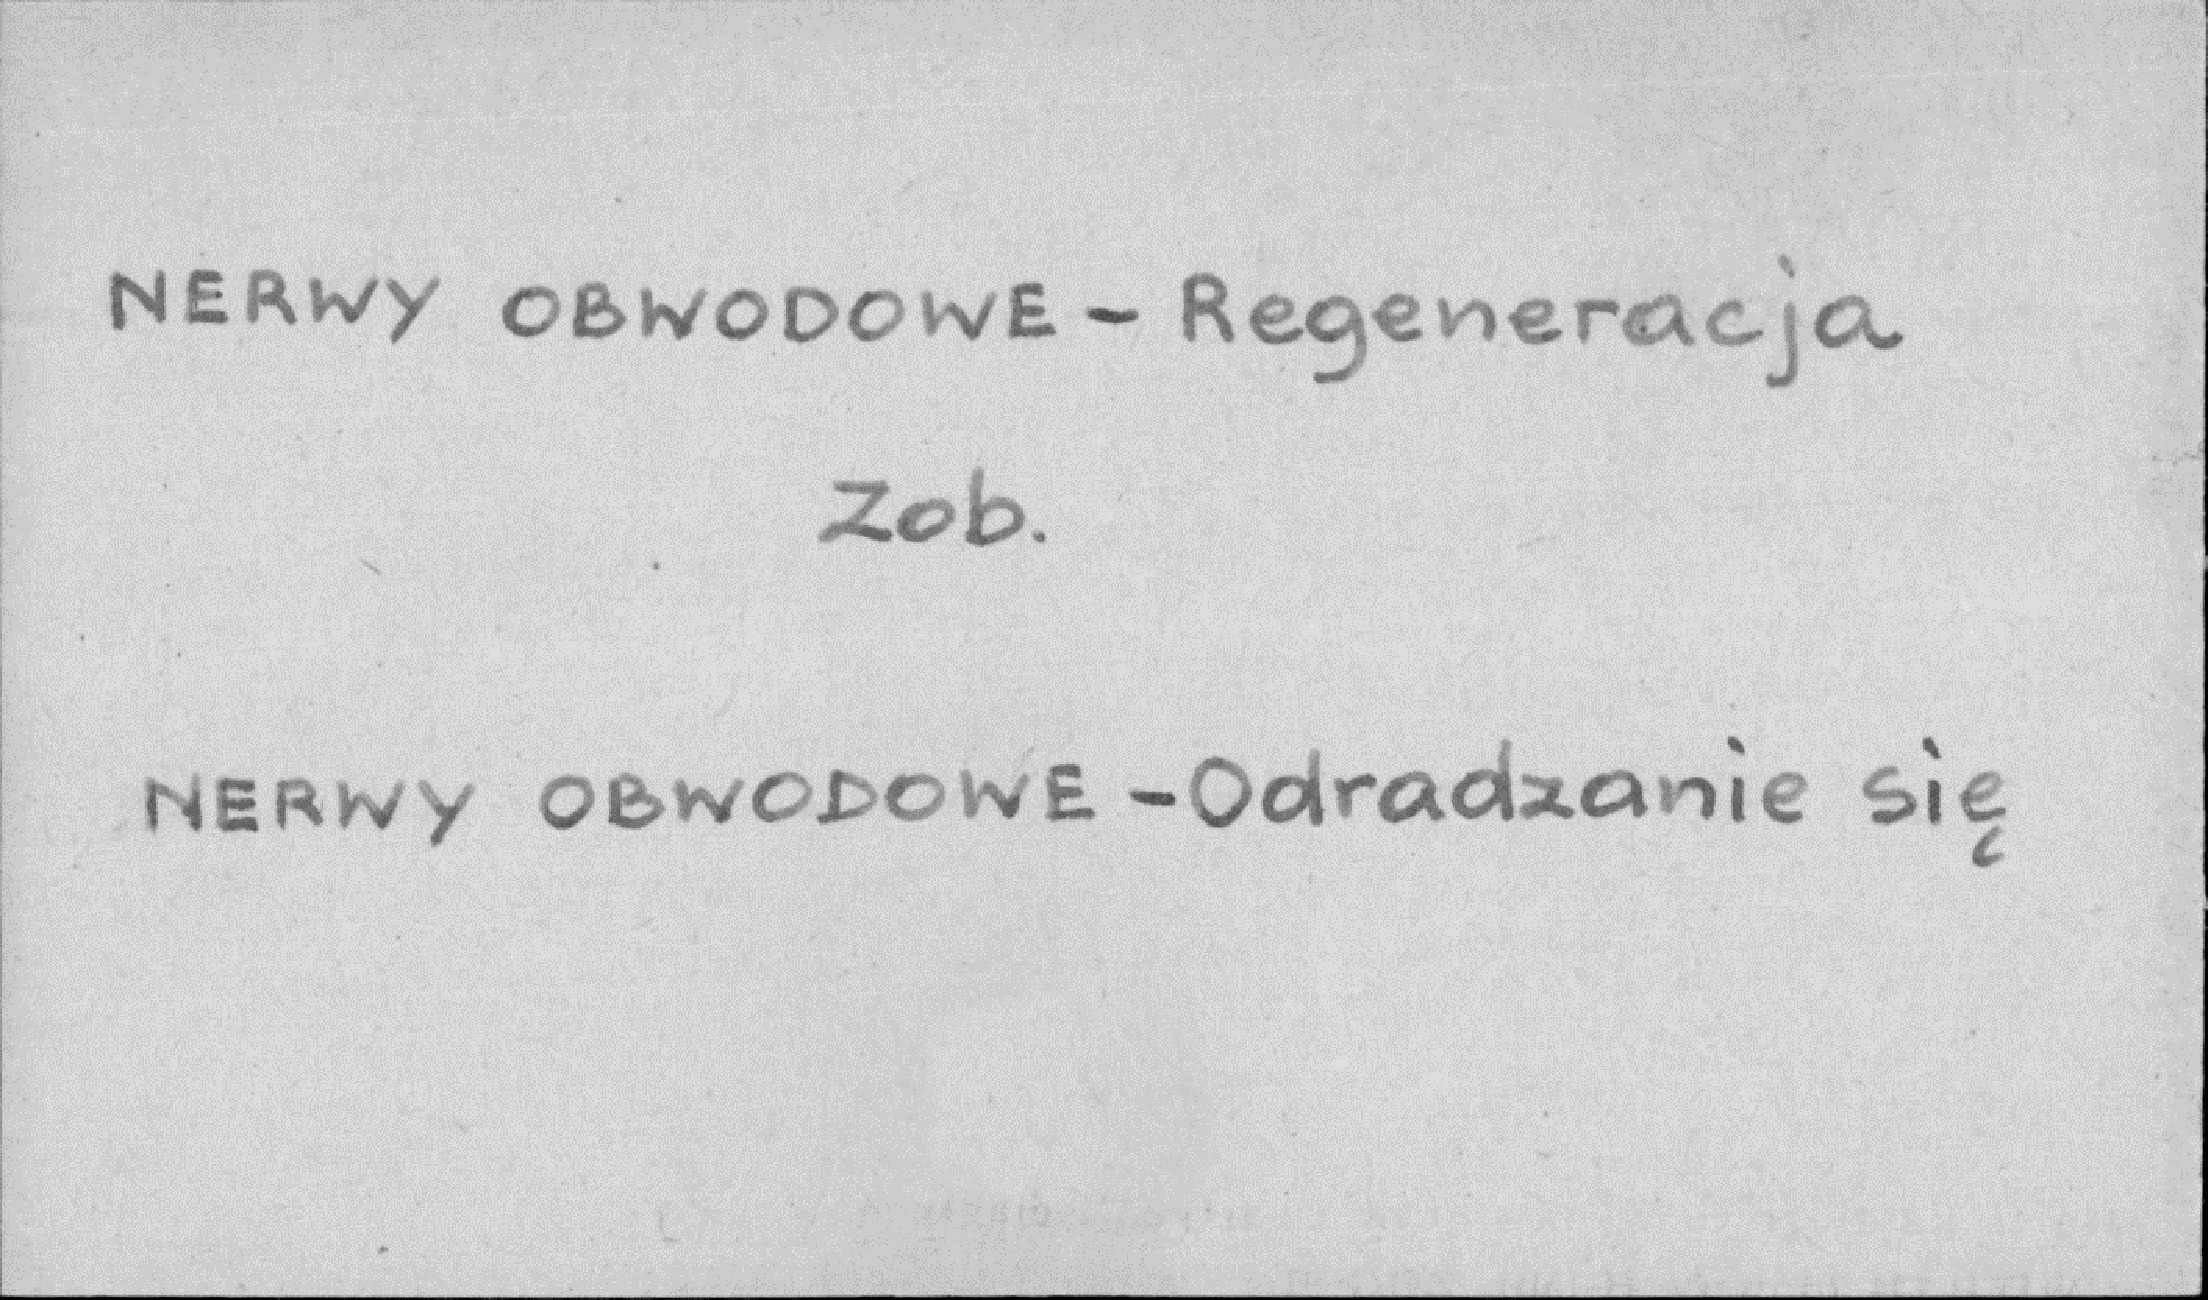 NERWY OBWODOWE - Regeneracja
Zob.
NERWY OBWODOWE - Odradzanie się